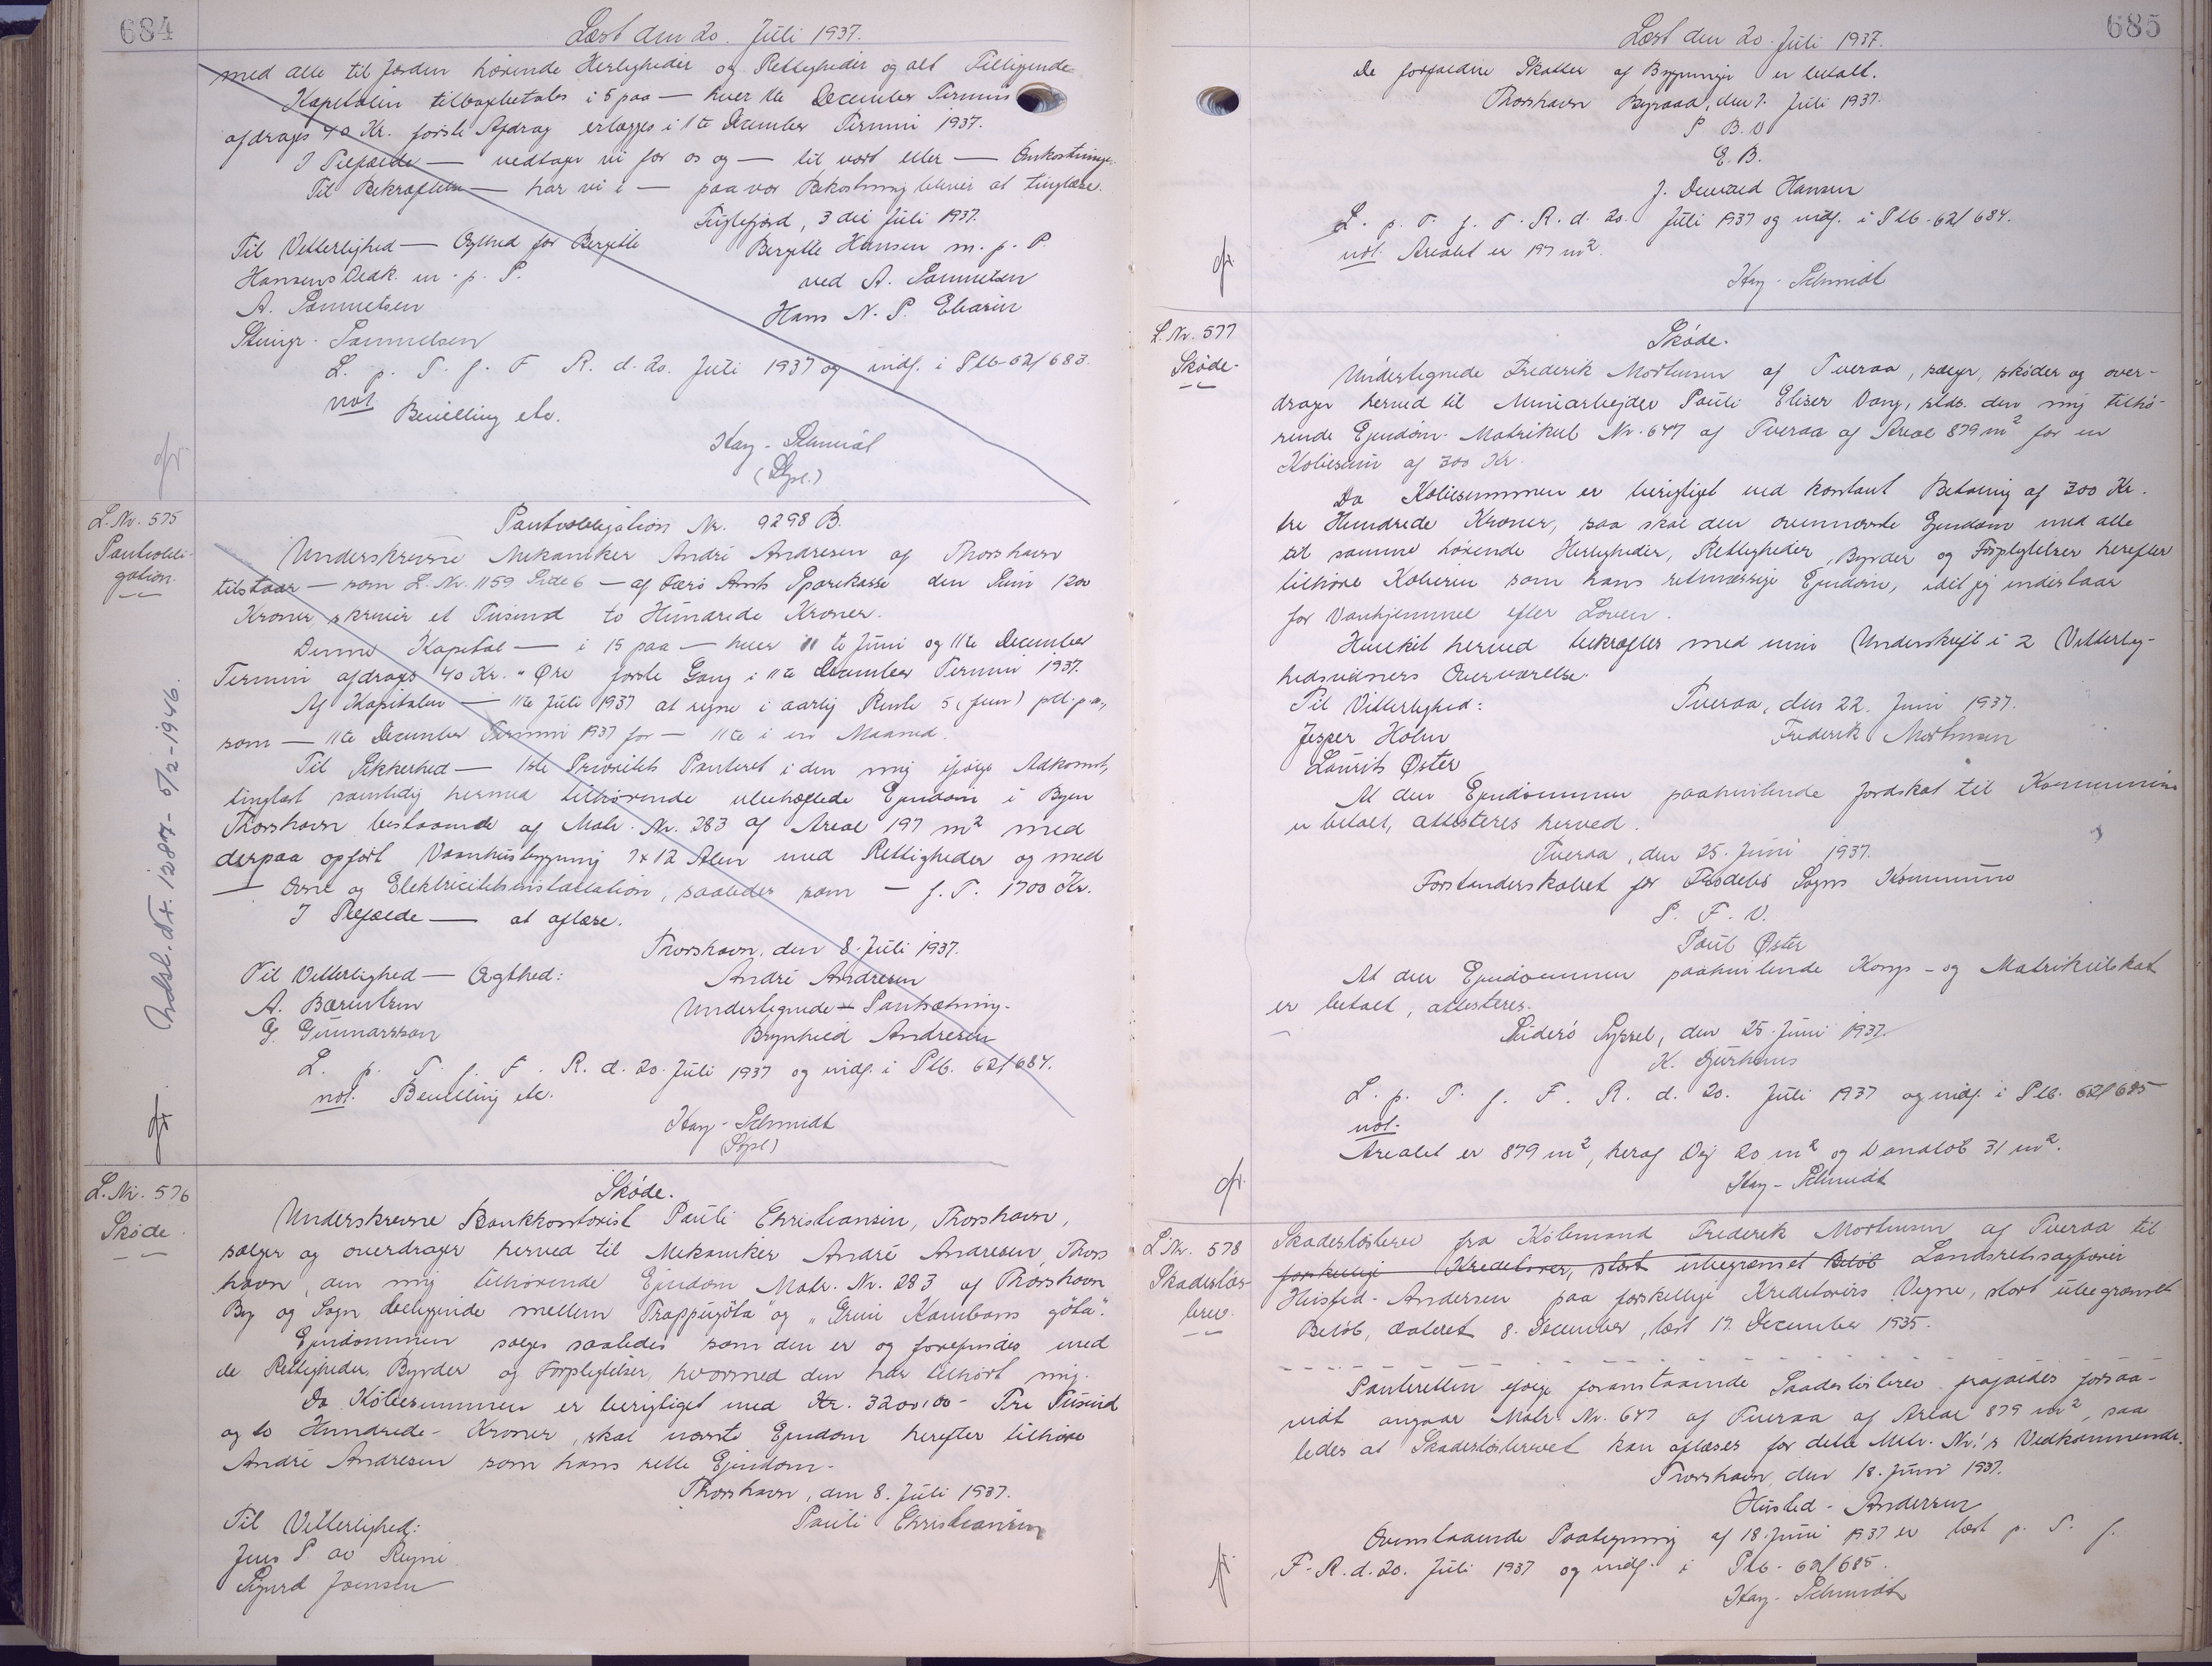 684
Læst den 20. Juli 1937.
med alle til Jorden hørende Herligheder og Rettigheder og alt Tilliggende
Kapitalen tilbagebetales i 5 paa — hver 11te December Termin
afdrages 40 Kr. første Afdrag erlægges i 11te December Termin 1937.
I Tilfælde — vedtager vi for os og — til vort eller — Omkostninger.
Til Bekræftelse — har vi i — paa vor Bekostning bliver at tinglæse.
Fuglefjord, 3 die Juli 1937.
Til Vitterlighed — Ægthed for Bergitte
Bergitte Hansen m. p. P.
Hansens Undsk. m. p. P.
ved A. Samuelsen
A. Samuelsen
Hans N. P. Eliasen
Samuelsen
L. p. T. f. F. R. d. 20. Juli 1937 og indf. i Plb. 62/683.
not. Bevilling etc.
Kay-Schmidt
(Sgsl.)
L. Nr. 575
Pantobli-
gation.
Pantobligation Nr. 9298 B.
Underskrevne Mekaniker André Andresen af Thorshavn
tilstaar — som L. Nr. 1159 Side 6 — af Færø Amts Sparekasse den Sum 1200
Kroner, skriver et Tusind to Hundrede Kroner.
Denne Kapital — i 15 paa — hver 11 te Juni og 11te December
Termin afdrages 40 Kr. " Øre første Gang i 11te December Termin 1937.
Af Kapitalen — 11te Juli 1937 at regne i aarlig Rente 5 (fem) pct. p. a.,
som — 11te December Termin 1937 for — 11te i en Maaned.
Til Sikkerhed — 1ste Prioritets Panteret i den mig ifølge Adkomst,
tinglæst samtidig hermed tilhørende ubehæftede Ejendom i Byen
Thorshavn bestaaende af Matr. Nr. 283 af Areal 197 m² med
derpaa opført Vaanhusbygning 7x12 Alen med Rettigheder og med
— Ovne og Elektricitetsinstallation, saaledes som — f. T. 1700 Kr.
I Tilfælde — at aflæse.
Thorshavn, den 8. Juli 1937.
Til Vitterlighed — Ægthed:
André Andresen
A. Bærentsen
Undertegnede — Pantsætning.
G. Gunnarsson
Brynhild Andresen
L. p. T. f. F. R. d. 20. Juli 1937 og indf. i Plb. 62/684.
not. Bevilling etc.
Kay-Schmidt
(Sgsl.)
Udsl. Nr. 1287 - 5/2-1946.
L. Nr. 576
Skøde.
Skøde.
Underskrevne Bankkontorist Pauli Christiansen, Thorshavn,
sælger og overdrager herved til Mekaniker André Andresen, Thors
havn, den mig tilhørende Ejendom Matr. Nr. 283 af Thorshavn
By og Sogn beliggende mellem "Trappugöta" og "Grím Kambans göta".
Ejendommen sælges saaledes som den er og forefindes med
de Rettigheder, Byrder og Forpligtelser, hvormed den har tilhørt mig.
Da Købesummen er berigtiget med Kr. 3200,00 - Tre Tusind
og to Hundrede - Kroner, skal nævnte Ejendom herefter tilhøre
André Andresen som hans rette Ejendom.
Thorshavn, den 8. Juli 1937.
Til Vitterlighed:
Pauli Christiansen
Jens P. av Reyni
Sigurd Joensen
685
Læst den 20. Juli 1937.
De forfaldne Skatter af Bygningen er betalt.
Thorshavn Byraad, den 7. Juli 1937.
P. B. V.
E. B.
J. Dewald Hansen
L. p. T. f. F. R. d. 20. Juli 1937 og indf. i Plb. 62/684.
not. Arealet er 197 m².
Kay-Schmidt
L. Nr. 577
Skøde.
Skøde.
Undertegnede Frederik Mortensen af Tveraa, sælger, skøder og over-
drager herved til Minearbejder Pauli Elieser Vang, sstds. den mig tilhø-
rende Ejendom Matrikul Nr. 647 af Tveraa af Areal 879 m² for en
Købesum af 300 Kr.
Da Købesummen er berigtiget ved kontant Betaling af 300 Kr.
tre Hundrede Kroner, saa skal den ovennævnte Ejendom med alle
til samme hørende Herligheder, Rettigheder, Byrder og Forpligtelser herefter
tilhøre Køberen som hans retmæssige Ejendom, idet jeg indestaar
for Vanhjemmel efter Loven.
Hvilket herved bekræftes med min Underskrift i 2 Vitterlig-
hedsvidners Overværelse.
Til Vitterlighed:
Tveraa, den 22. Juni 1937.
Jesper Holm
Frederik Mortensen
Laurits Øster
At den Ejendommen paahvilende Jordskat til Kommunen
er betalt, attesteres herved.
Tveraa, den 25. Juni 1937.
Forstanderskabet for Frodebø Sogns Kommune
P. F. V.
Paul Øster
At den Ejendommen paahvilende Korps- og Matrikulskat
er betalt, attesteres.
Suderø Syssel, den 25. Juni 1937.
K. Djurhuus
L. p. T. f. F. R. d. 20. Juli 1937 og indf. i Plb. 62/685
not.
Arealet er 879 m², heraf Vej 20 m² og Vandløb 31 m².
Kay-Schmidt
L. Nr. 578
Skadesløs-
brev.
Skadesløsbrev fra Købmand Frederik Mortensen af Tveraa til
forskellige Kreditorer, stort ubegrænset Beløb Landsretssagfører
Husted-Andersen paa forskellige Kreditorers Vegne, stort ubegrænset
Beløb, dateret 8. December, læst 17. December 1935.
Panteretten ifølge foranstaaende Skadesløsbrev frafaldes forsaa-
vidt angaar Matr. Nr. 647 af Tveraa af Areal 879 m², saa
ledes at Skadesløsbrevet kan aflæses for dette Matr. Nr.'s Vedkommende.
Thorshavn, den 18. Juni 1937.
Husted-Andersen
Ovenstaaende Paategning af 18. Juni 1937 er læst p. T. f.
F. R. d. 20. Juli 1937 og indf. i Plb. 62/685.
Kay-Schmidt